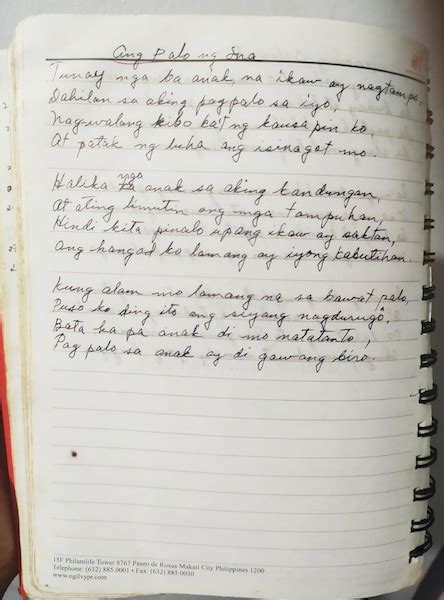 Ang Palo ng Ina
Tunay nga ba anak, na ikaw ay nagtampo,
Dahilan sa aking pagpalo sa iyo,
Nagwalang kibo ka't ng kausapin ko,
At patak ng luha ang isinagot mo.
Halika nga anak sa aking kandungan,
At ating limutin ang mga tampuhan,
Hindi kita pinalo upang ikaw ay saktan,
Ang hangad ko lamang ay iyong kabutihan.
Kung alam mo lamang na sa bawat palo,
Puso ko ding ito ang siyang nagdurugô.
Bata ka pa anak di mo natatanto,
Pag palo sa anak ay di gawang biro.
15F Philamlife Tower 8767 Paseo de Roxas Makati City Philippines 1200
Telephone: (632) 885.0001 • Fax: (632) 885 0030
www.ogilvypr.com